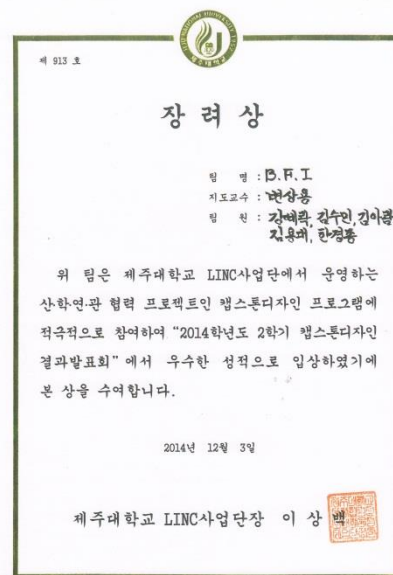 제주대학교
제 913 호
장 려 상
팀 명 : B.F.I
지도교수 : 변상용
팀 원 : 김수민, 김아람
한경훈
위 팀은 제주대학교 LINC사업단에서 운영하는
산학연·관 협력 프로젝트인 캡스톤디자인 프로그램에
적극적으로 참여하여 “2014학년도 2학기 캡스톤디자인
결과발표회” 에서 우수한 성적으로 입상하였기에
본 상을 수여합니다.
2014년 12월 3일
제주대학교 LINC사업단장 이 상 백